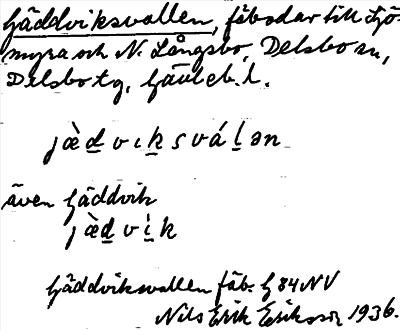 Gäddviksvallen, fäbodar till Sjö-
myra och N. Långsbo, Delsbo sn,
Delsbo tg, Gävleb. l.
jæ̀d̲vık̲sváḻən
även Gäddvik
jæ̀d̲vı̲̀k
Gäddviksvallen fäb. G 84 NV
Nils Erik Eriksson 1936.